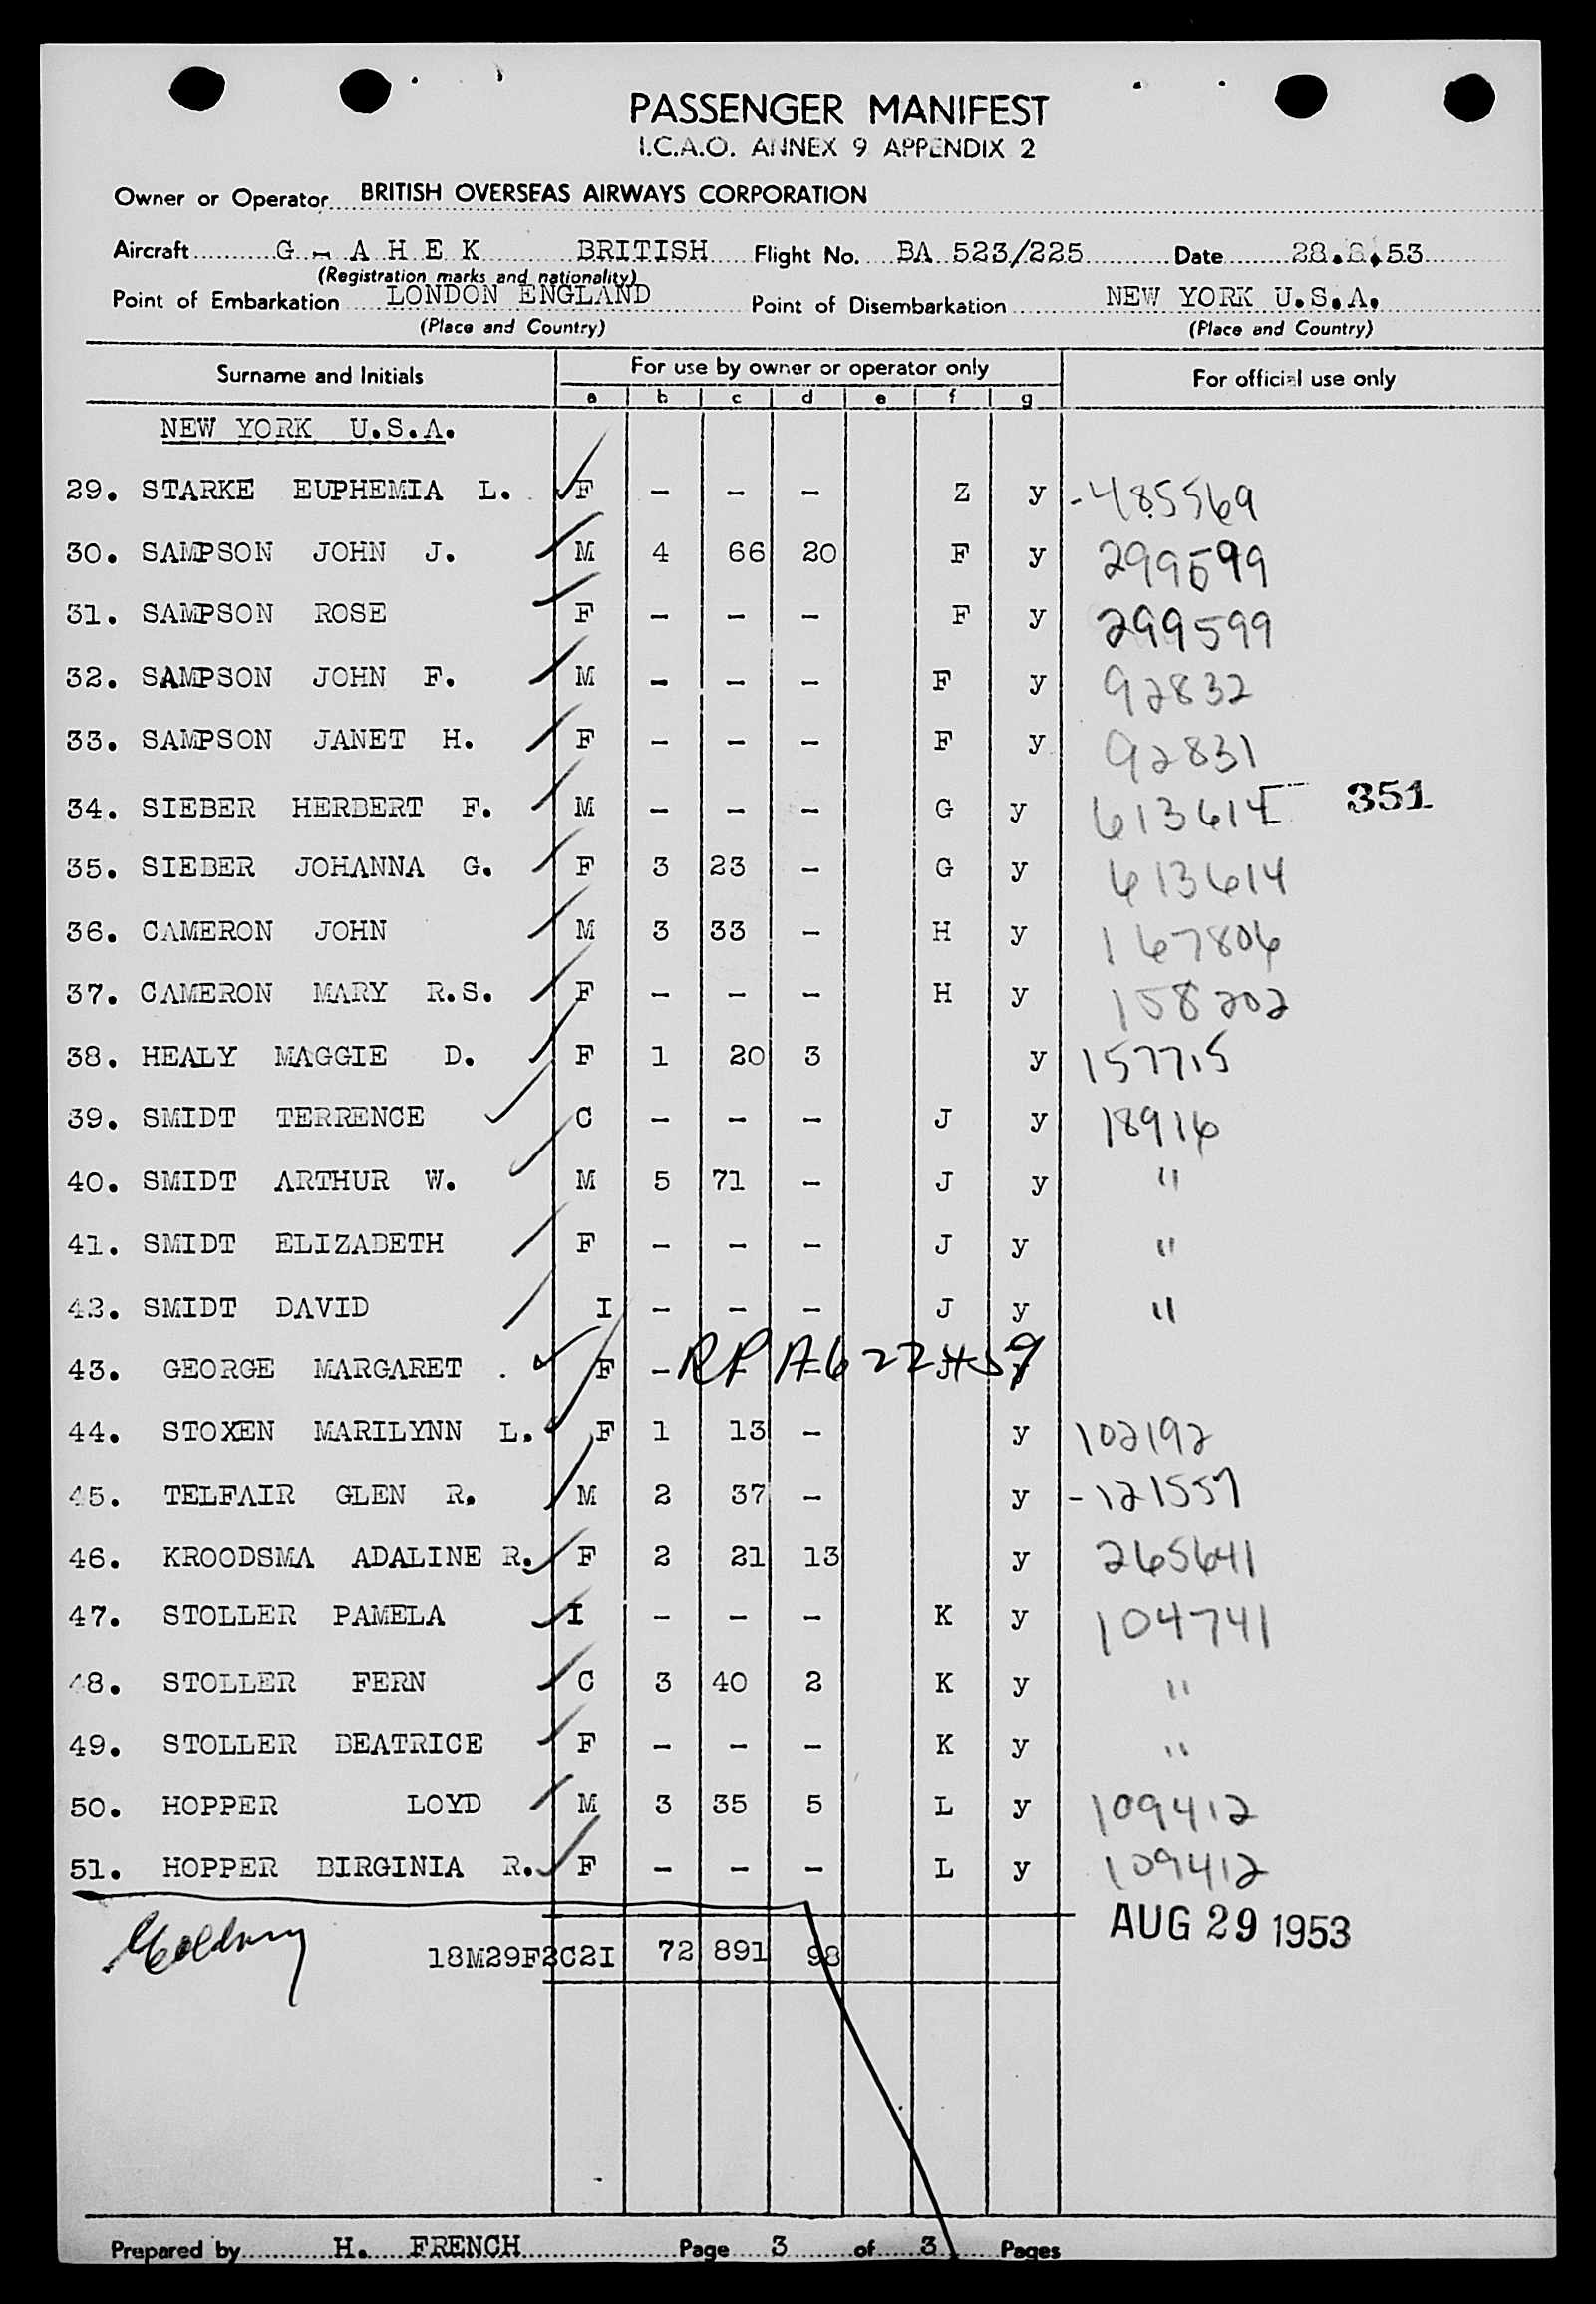 PASSENGER MANIFEST
I.C.A.O. ANNEX 9 APPENDIX 2
Owner or Operator BRITISH OVERSEAS AIRWAYS CORPORATION
Aircraft G - A H E K BRITISH Flight No. BA 523/225 Date 28.8.53
(Registration marks and nationality)
Point of Embarkation LONDON ENGLAND Point of Disembarkation NEW YORK U.S.A.
(Place and Country) (Place and Country)
Surname and Initials For use by owner or operator only For official use only
a b c d e f g
NEW YORK U.S.A.
29. STARKE EUPHEMIA L. F - - - Z y -485569
30. SAMPSON JOHN J. M 4 66 20 F y 299599
31. SAMPSON ROSE F - - - F y 299599
32. SAMPSON JOHN F. M - - - F y 92832
33. SAMPSON JANET H. F - - - F y 92831
34. SIEBER HERBERT F. M - - - G y 613614 351
35. SIEBER JOHANNA G. F 3 23 - G y 613614
36. CAMERON JOHN M 3 33 - H y 167806
37. CAMERON MARY R.S. F - - - H y 158202
38. HEALY MAGGIE D. F 1 20 3 y 157715
39. SMIDT TERRENCE C - - - J y 18916
40. SMIDT ARTHUR W. M 5 71 - J y "
41. SMIDT ELIZABETH F - - - J y "
42. SMIDT DAVID I - - - J y "
43. GEORGE MARGARET . F - RP A622459
44. STOXEN MARILYNN L. F 1 13 - y 102192
45. TELFAIR GLEN R. M 2 37 - y -121557
46. KROODSMA ADALINE R. F 2 21 13 y 265641
47. STOLLER PAMELA I - - - K y 104741
48. STOLLER FERN C 3 40 2 K y "
49. STOLLER BEATRICE F - - - K y "
50. HOPPER LOYD M 3 35 5 L y 109412
51. HOPPER BIRGINIA R. F - - - L y 109412
AUG 29 1953
18M29F2C2I 72 891 98
Prepared by H. FRENCH Page 3 of 3 Pages